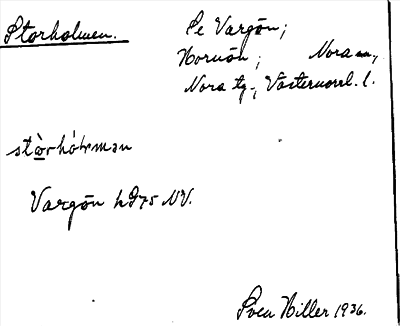 Storholmen. Se Vargön;
Hornön; Nora sn,
Nora tg., Västernorrl. l.
Vargön h975 NV.
Sven Hiller 1936.